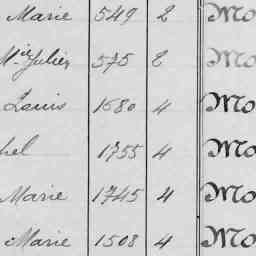 Marie 549 2 Mo
Mie Julien 575 2 Mo
Louis 1680 4 Mo
hel 1755 4 Mo
Marie 1745 4 Mo
Marie 1508 4 Mo